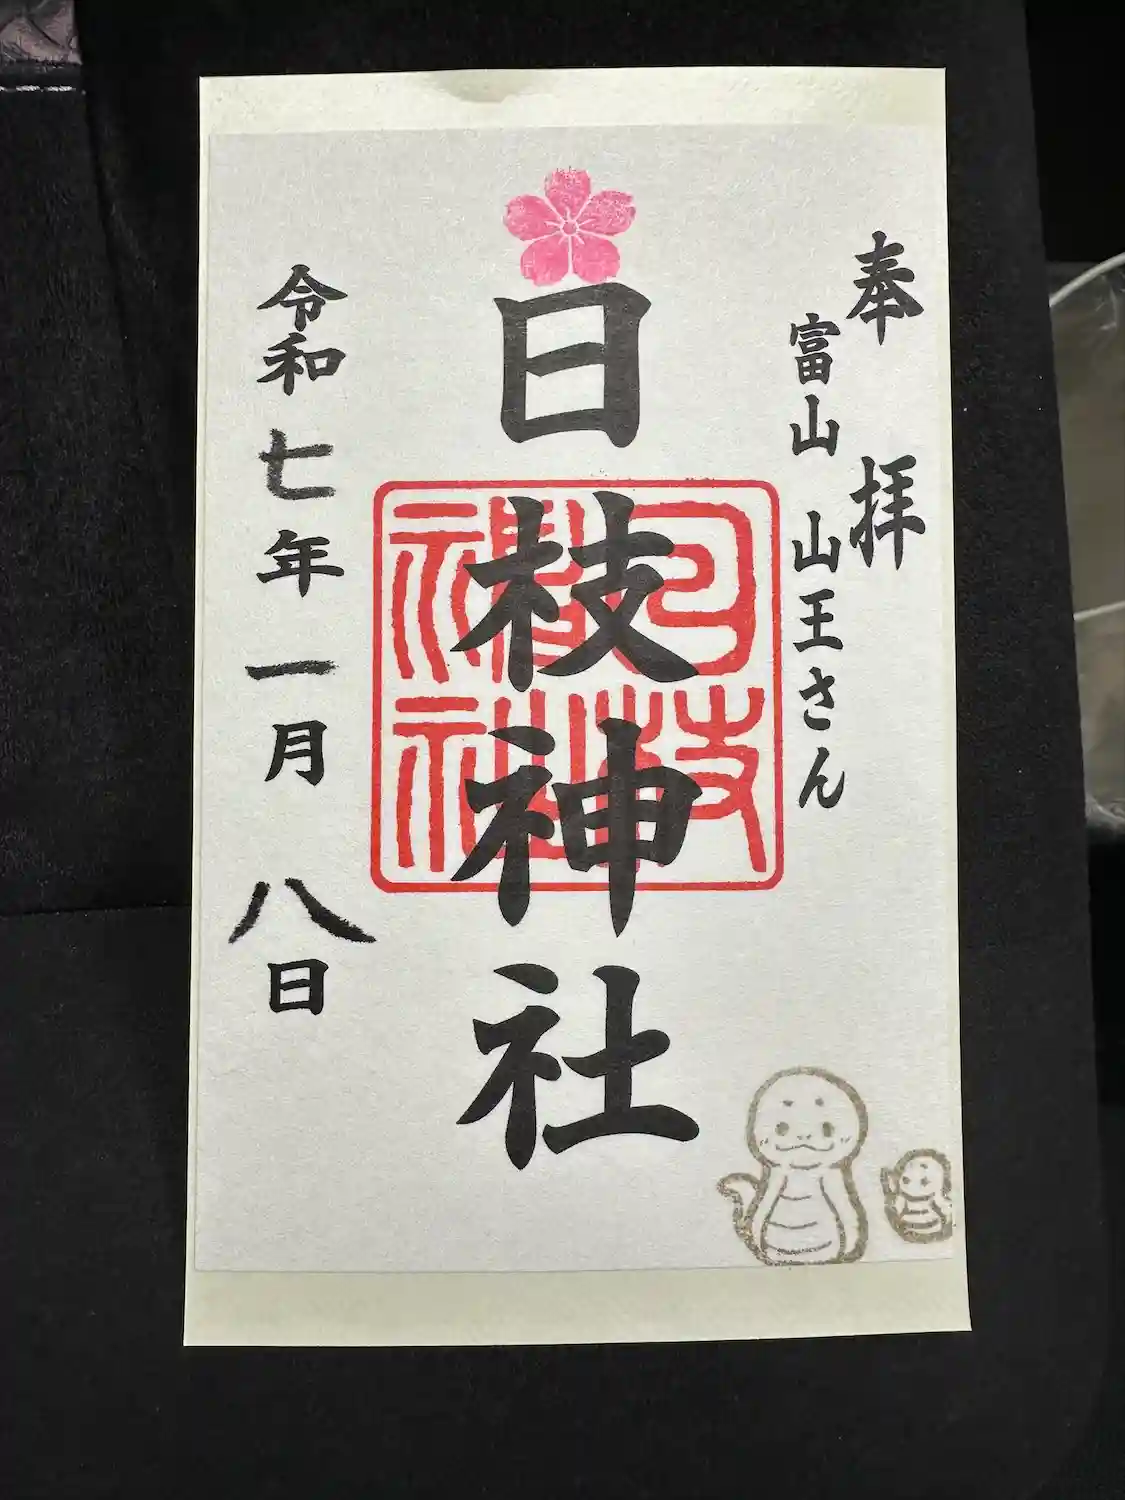 奉拝
富山 山王さん
日枝神社
日枝神社
令和七年一月八日